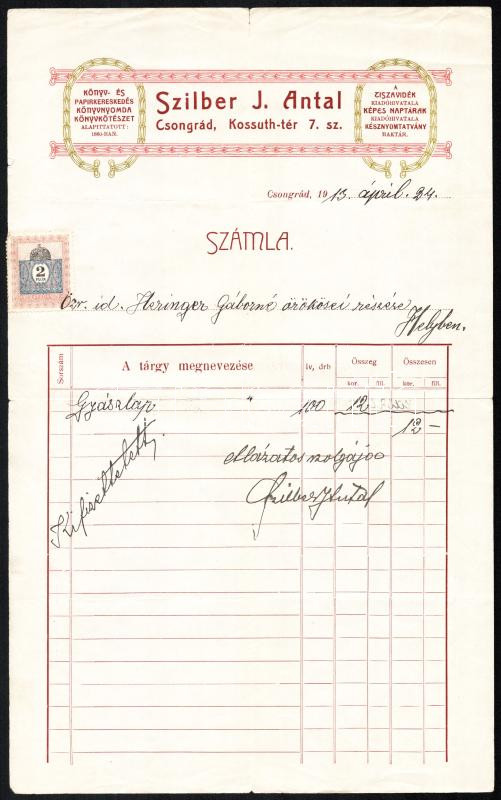 KÖNYV- ÉS
PAPIRKERESKEDÉS
KÖNYVNYOMDA
KÖNYVKÖTÉSZET
ALAPITTATOTT:
1880-BAN.
Szilber J. Antal
Csongrád, Kossuth-tér 7. sz.
A
TISZAVIDÉK
KIADÓHIVATALA
KÉPES NAPTÁRAK
KIADÓHIVATALA
KÉSZNYOMTATVÁNY
RAKTÁR.
Csongrád, 1913 ápril. 24.
SZÁMLA.
2
Özv. id. Heringer Gáborné örökösei részére
Helyben.
Sorszám
A tárgy megnevezése
ív, drb
Összeg
Összesen
kor.
fill.
kor.
fill.
Gyászlap " 100 12
12 –
Kifizettetett
alázatos szolgája
Szilber J Antal